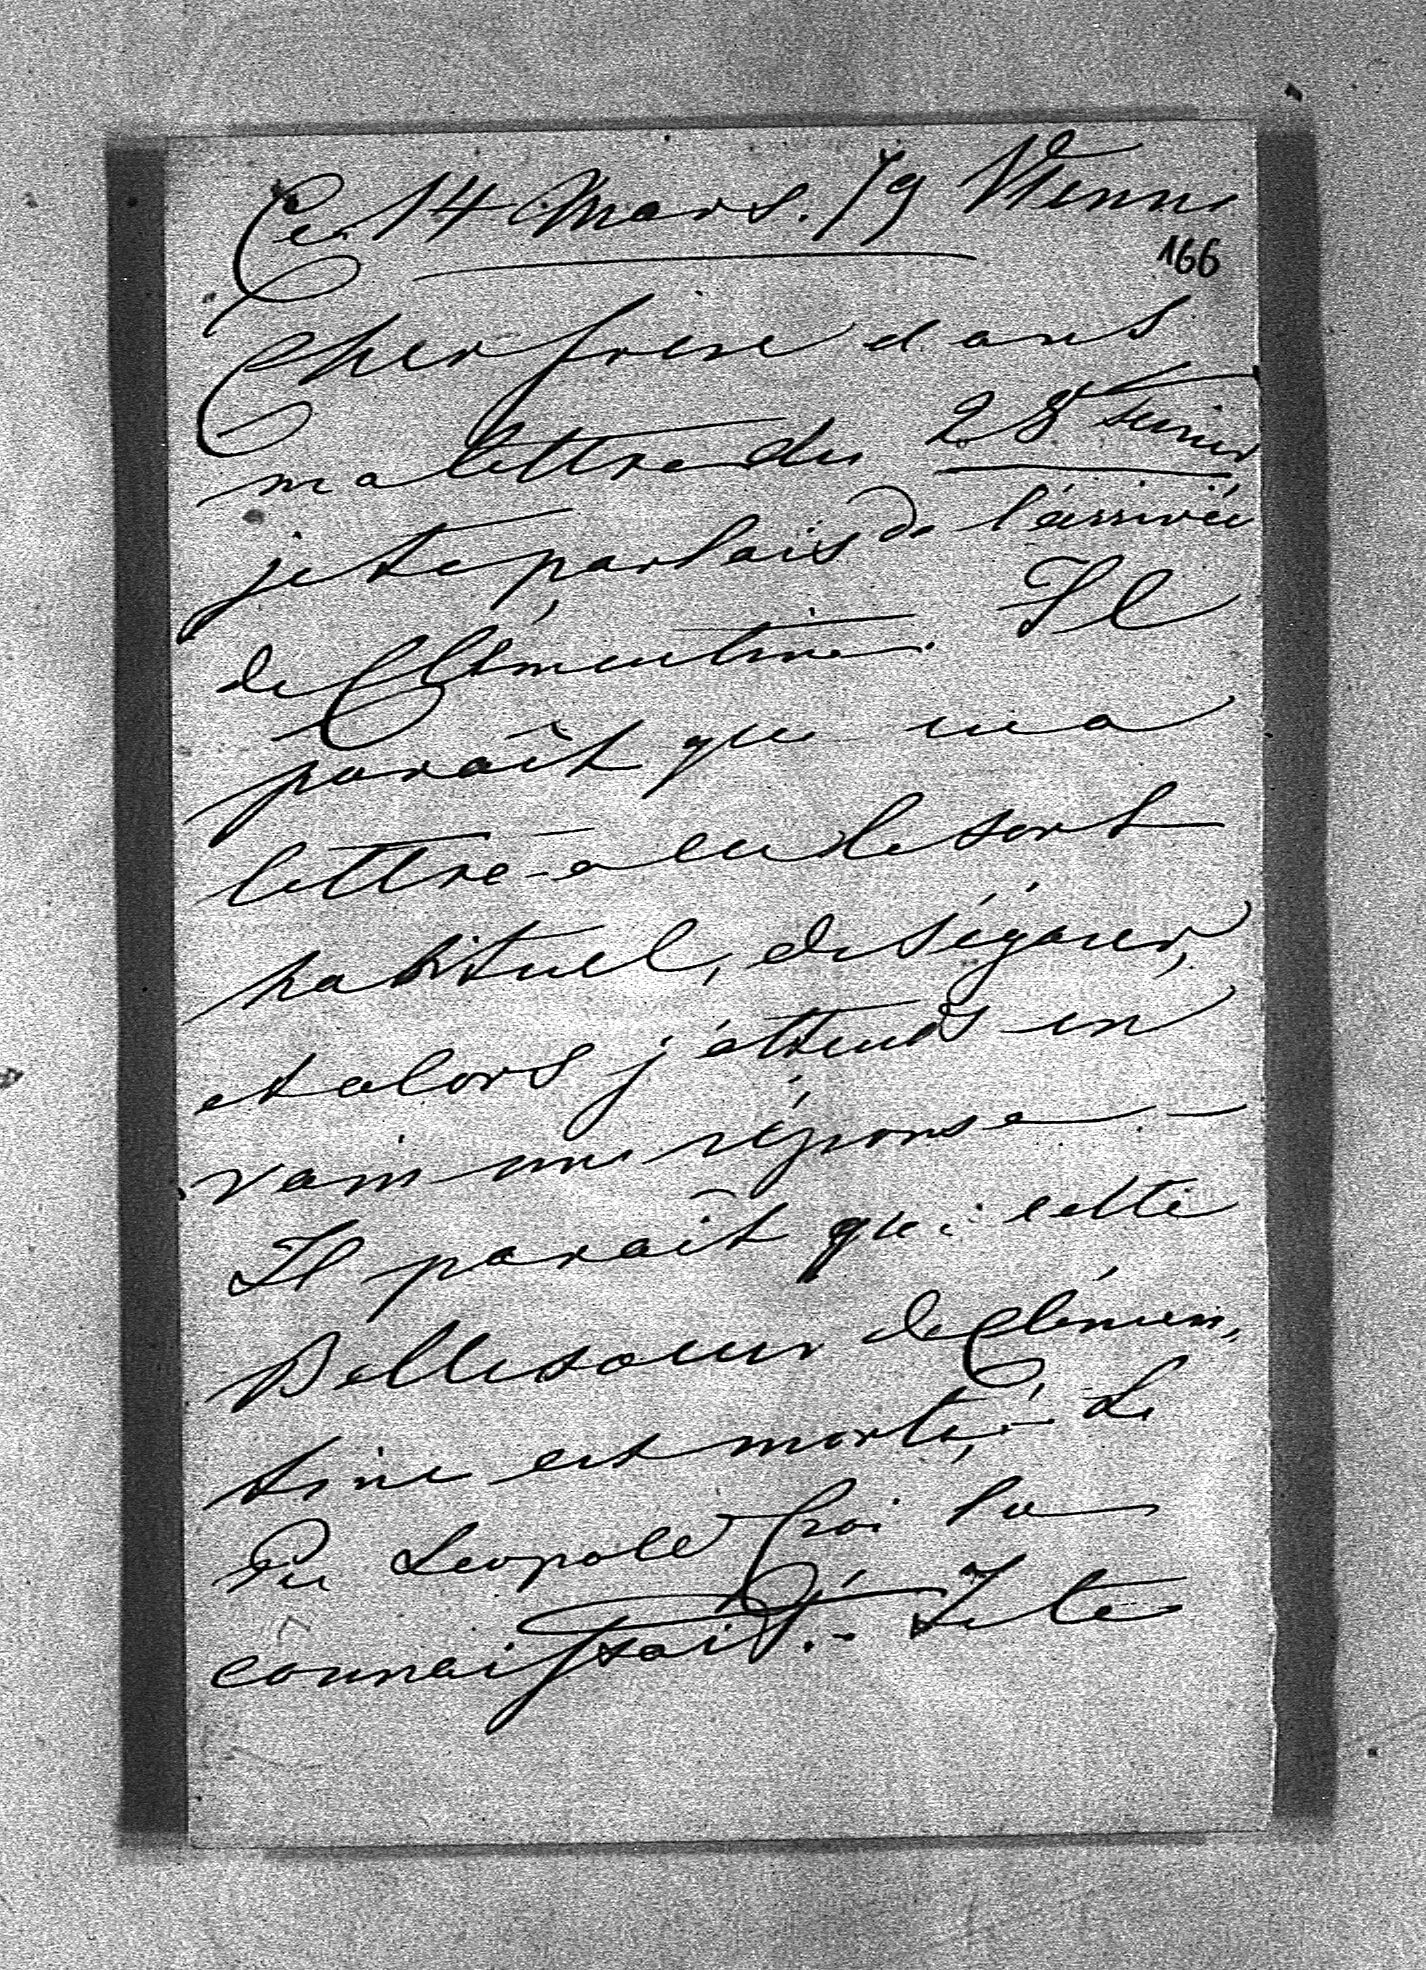 Ce 14 Mars. 79 Vienne
166
Cher frere dans
ma lettre du 28
je te parlais de l'arrivée
de Clémentine. Il
paraît que ma
lettre a eu le sort
habituel, de s'égarer,
et alors j'attends en
vain une réponse –
Il paraît que cette
Belle soeur de Clémen,
tine est morte, – Le
Pce Leopold Croi la
connaissait. – Je te